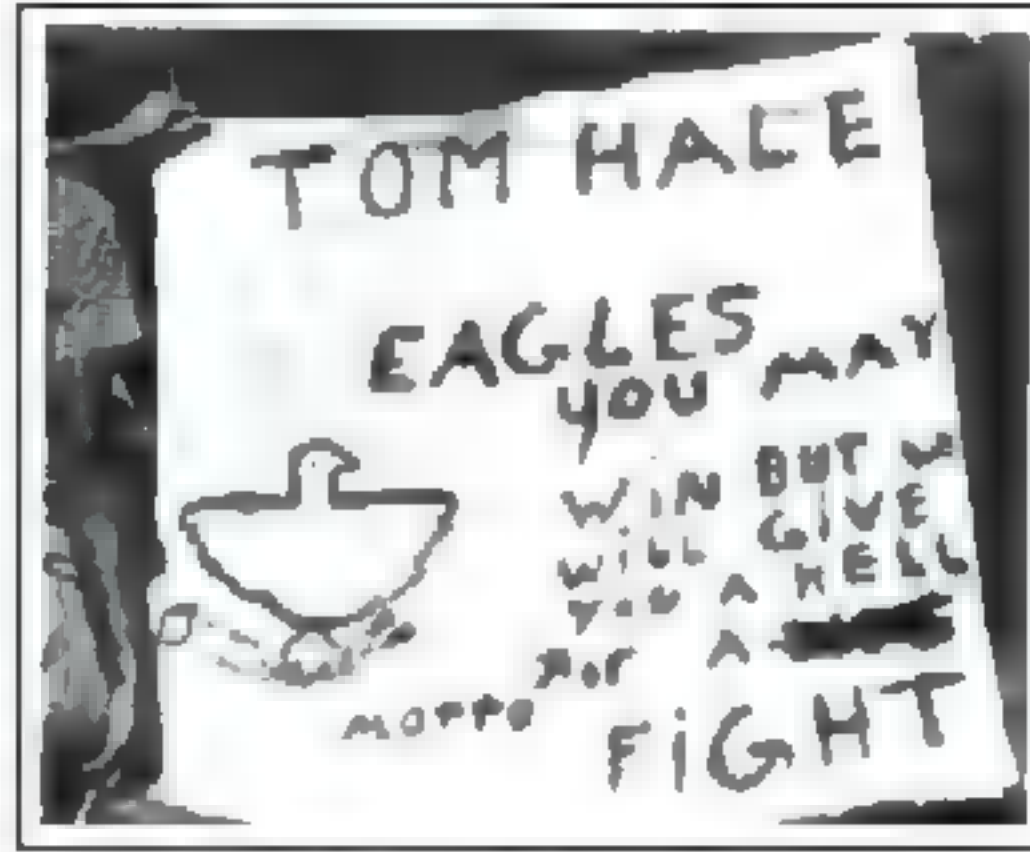 TOM HALE
EAGLES
YOU MAY
WIN BUT W
WILL GIVE
YOU A HELL
FOR A
MOTTO
FIGHT